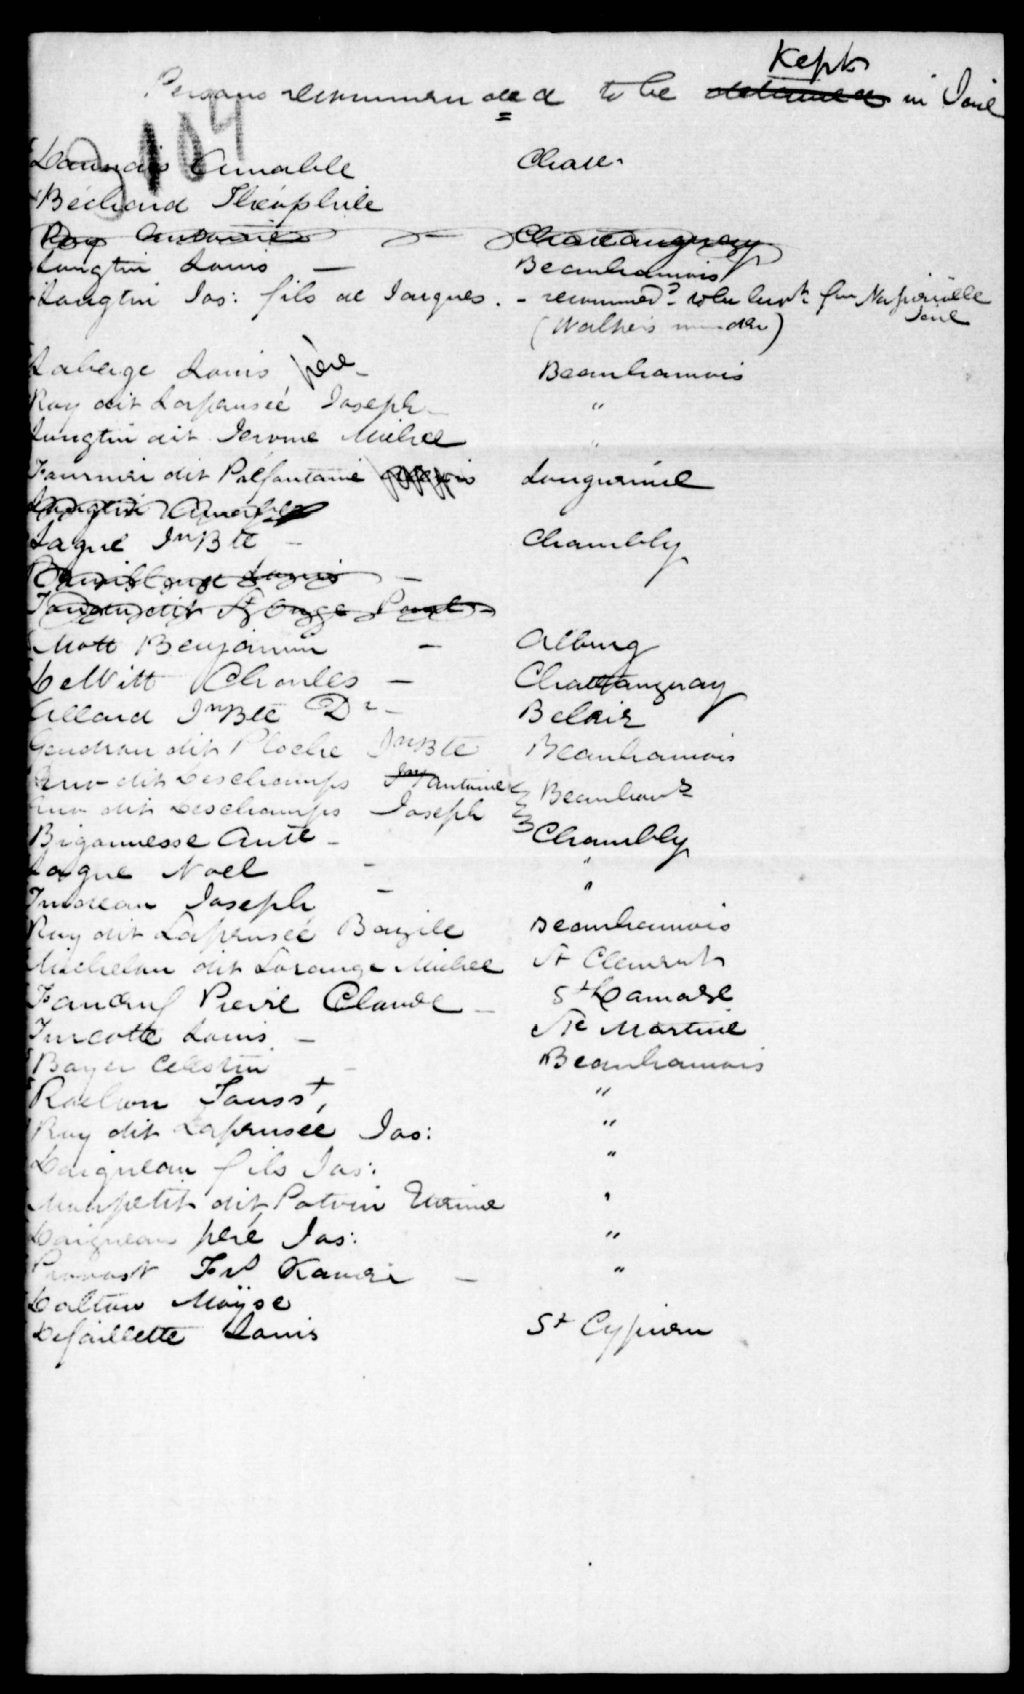 Kept
Persons recommended to be detained in Jail
104
Daunais Amable Chase
Béchard Théophile
Roy Antoine Chateauguay
Longtin Louis — Beauharnois
Longtin Jas: fils de Jacques. - recommed to be kept for Napierville Jail
(Walker's murder)
Laberge Louis père - Beauharnois
Roy dit Lapensée Joseph "
Longtin dit Jerome Michel "
Fournier dit Préfontaine Longueuil
Longtin
Lague Jn Bte - Chambly
Louis -
dit St Onge Paul -
Mott Benjamin - Alburg
DeWitt Charles - Chateauguay
Allard Jn Bte Dr - Belair
Gendron dit Ploche Jn Bte Beauharnois
dit Deschamps Jn Antoine Beauhars
dit Deschamps Joseph
Bigonnesse Ante - Chambly
Lague Noel - "
Joseph - "
Roy dit Lapensée Bazile Beauharnois
dit Lorange Michel St Clement
Pierre Claude - St Damase
Turcotte Louis - Ste Martine
Boyer Celestin - Beauharnois
Rochon Tousst, "
Roy dit Lapensée Jos: "
Daigneau fils Jas: "
Monpetit dit Potvin "
Daigneau père Jas: "
Provost Frs Xavier - "
Dalton Moÿse
Defaillette Louis St Cyprien